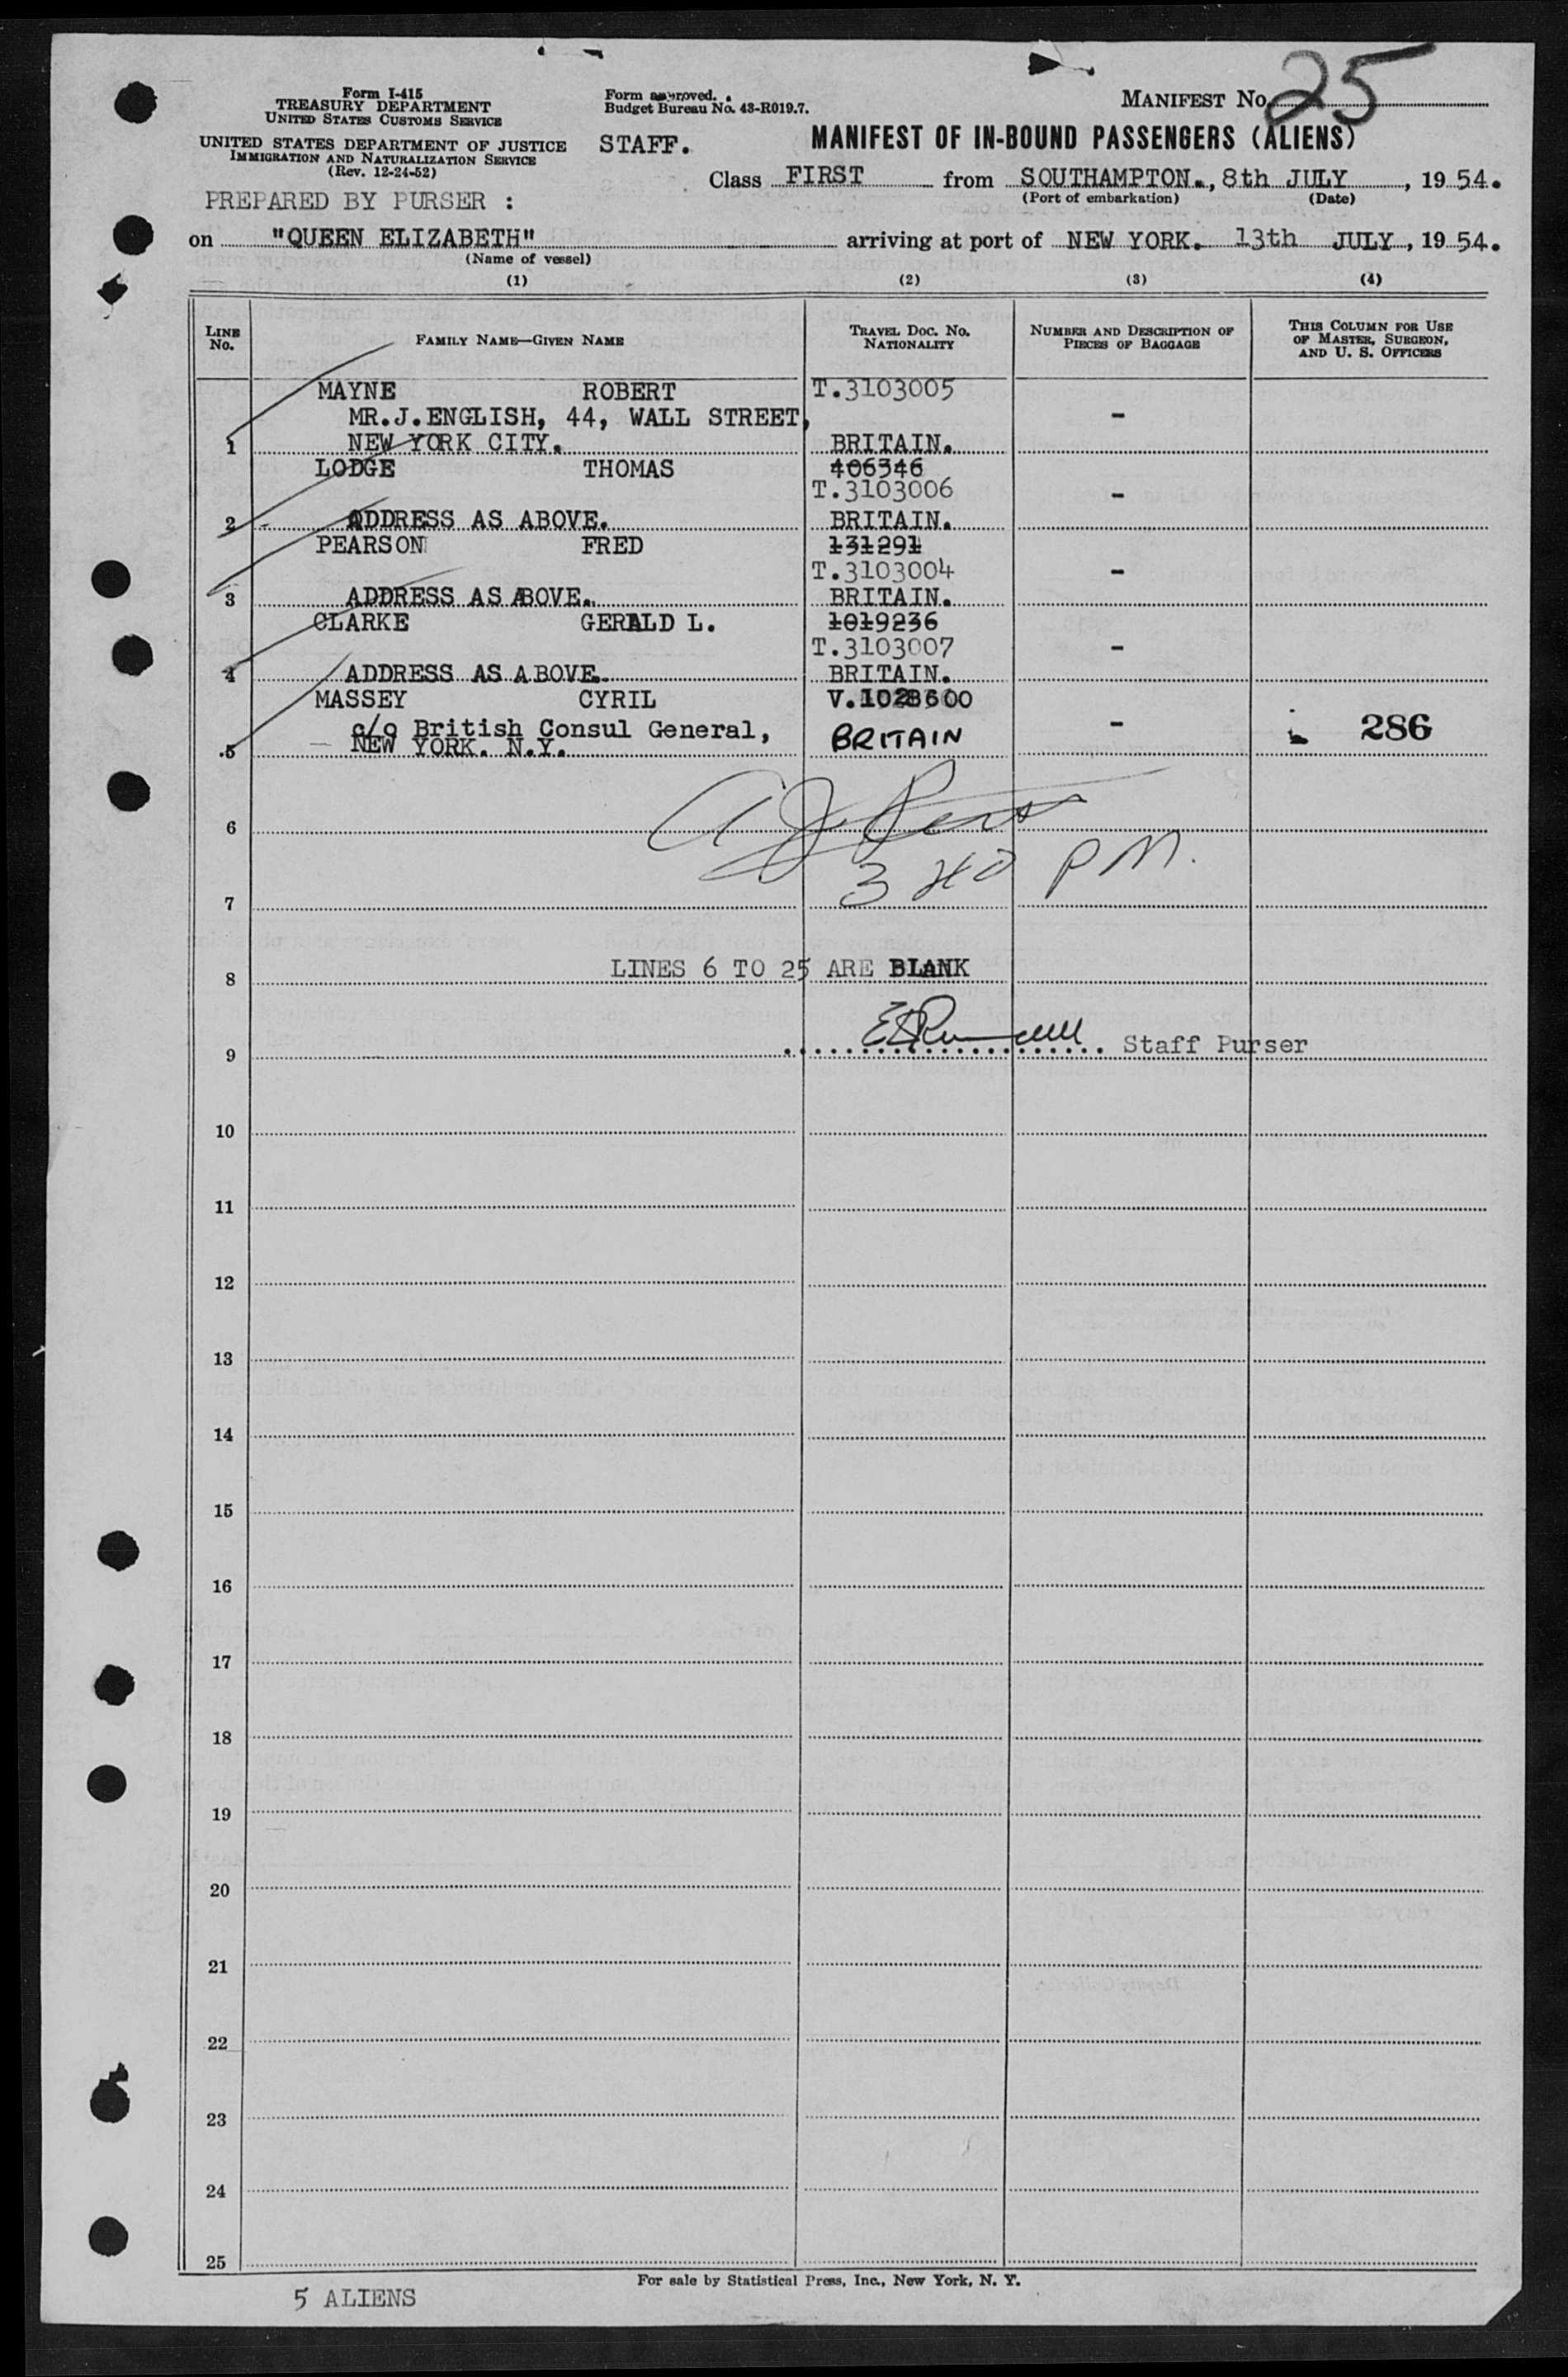 Form I-415
TREASURY DEPARTMENT
UNITED STATES CUSTOMS SERVICE
UNITED STATES DEPARTMENT OF JUSTICE
IMMIGRATION AND NATURALIZATION SERVICE
(Rev. 12-24-52)
Form approved.
Budget Bureau No. 43-R019.7.
MANIFEST No. 25
STAFF.
MANIFEST OF IN-BOUND PASSENGERS (ALIENS)
Class FIRST from SOUTHAMPTON., 8th JULY, 19 54.
(Port of embarkation) (Date)
PREPARED BY PURSER :
on "QUEEN ELIZABETH" arriving at port of NEW YORK. 13th JULY, 19 54.
(Name of vessel)
(1) (2) (3) (4)
LINE No. FAMILY NAME—GIVEN NAME TRAVEL DOC. NO. NATIONALITY NUMBER AND DESCRIPTION OF PIECES OF BAGGAGE THIS COLUMN FOR USE OF MASTER, SURGEON, AND U. S. OFFICERS
MAYNE ROBERT T.3103005
MR.J.ENGLISH, 44, WALL STREET, -
1 NEW YORK CITY. BRITAIN.
LODGE THOMAS 406346
T.3103006 -
2 ADDRESS AS ABOVE. BRITAIN.
PEARSON FRED 131291
T.3103004 -
3 ADDRESS AS ABOVE. BRITAIN.
CLARKE GERALD L. 1019236
T.3103007 -
4 ADDRESS AS ABOVE. BRITAIN.
MASSEY CYRIL V.1028600
c/o British Consul General, BRITAIN - 286
5 NEW YORK. N.Y.
6
3 40 PM.
7
8 LINES 6 TO 25 ARE BLANK
9 Staff Purser
10
11
12
13
14
15
16
17
18
19
20
21
22
23
24
25
For sale by Statistical Press, Inc., New York, N. Y.
5 ALIENS